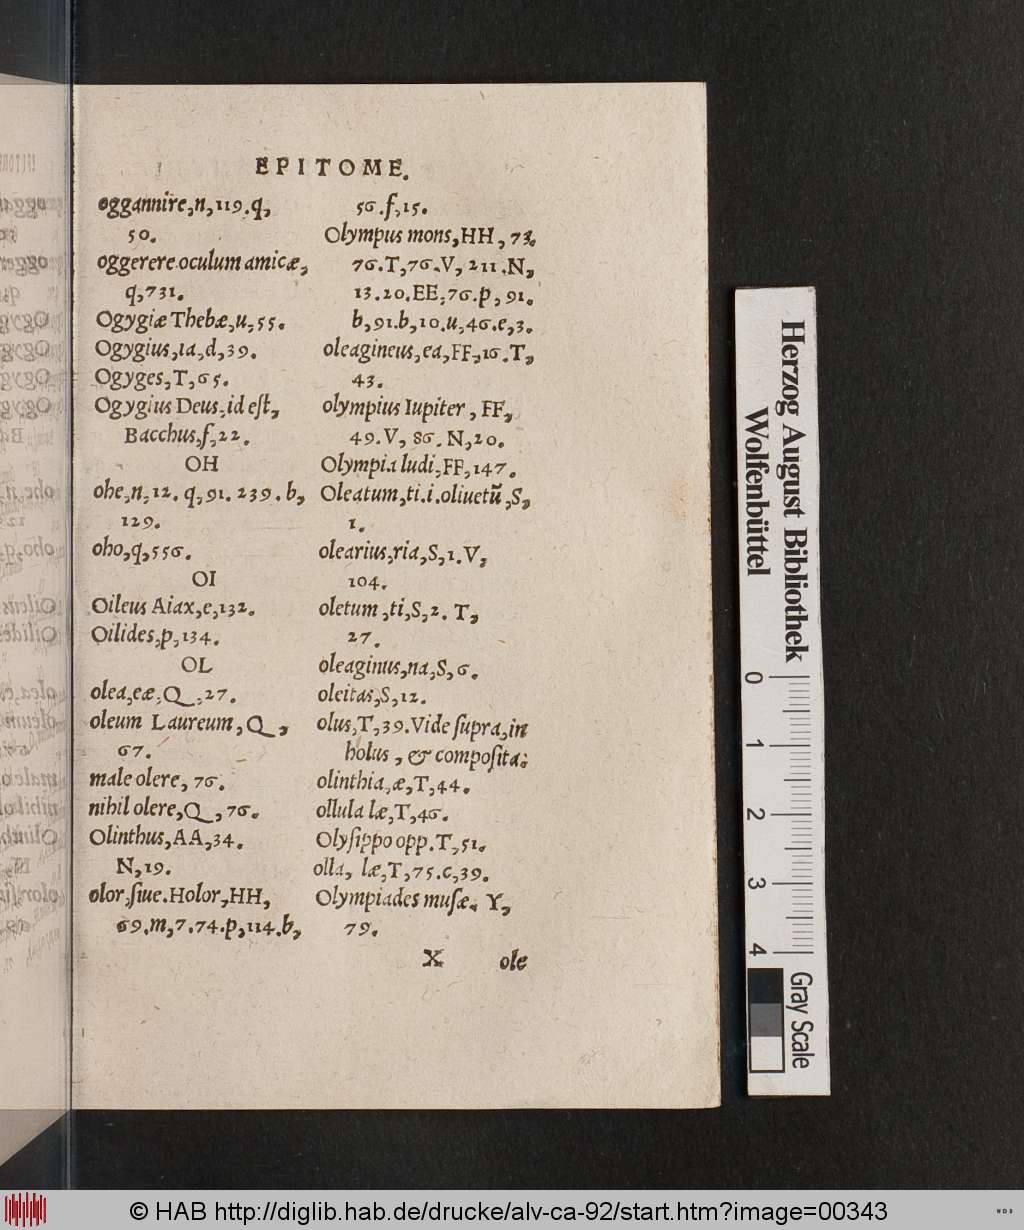 EPITOME.
oggannire,n,119.q,
50.
oggerere oculum amicæ,
q,731.
Ogygiæ Thebæ,u,55.
Ogygius,ia,d,39.
Ogyges,T,65.
Ogygius Deus,id eſt,
Bacchus,f,22.
OH
ohe,n,12.q,91.239.b,
129.
oho,q,556.
OI
Oileus Aiax,e,132.
Oilides,p,134.
OL
olea,eæ,Q,27.
oleum Laureum,Q,
67.
male olere, 76.
nihil olere,Q,76.
Olinthus,AA,34.
N,19.
olor,ſiue.Holor,HH,
69.m,7.74.p,114.b,
56.f,15.
Olympus mons,HH,73.
76.T,76.V,211.N,
13.20.EE,76.p,91.
b,91.b,10.u,46.e,3.
oleagineus,ea,FF,16.T,
43.
olympius Iupiter,FF,
49.V,86.N,20.
Olympia ludi,FF,147.
Oleatum,ti.i.oliuetũ,S,
1.
olearius,ria,S,1.V,
104.
oletum,ti,S,2.T,
27.
oleaginus,na,S,6.
oleitas,S,12.
olus,T,39.Vide ſupra,in
holus, & compoſita.
olinthia,æ,T,44.
ollula læ,T,46.
Olyſippo opp.T,51.
olla, læ,T,75.c,39.
Olympiades muſæ. Y,
79.
X ole
Herzog August Bibliothek
Wolfenbüttel
0 1 2 3 4
Gray Scale
© HAB http://diglib.hab.de/drucke/alv-ca-92/start.htm?image=00343